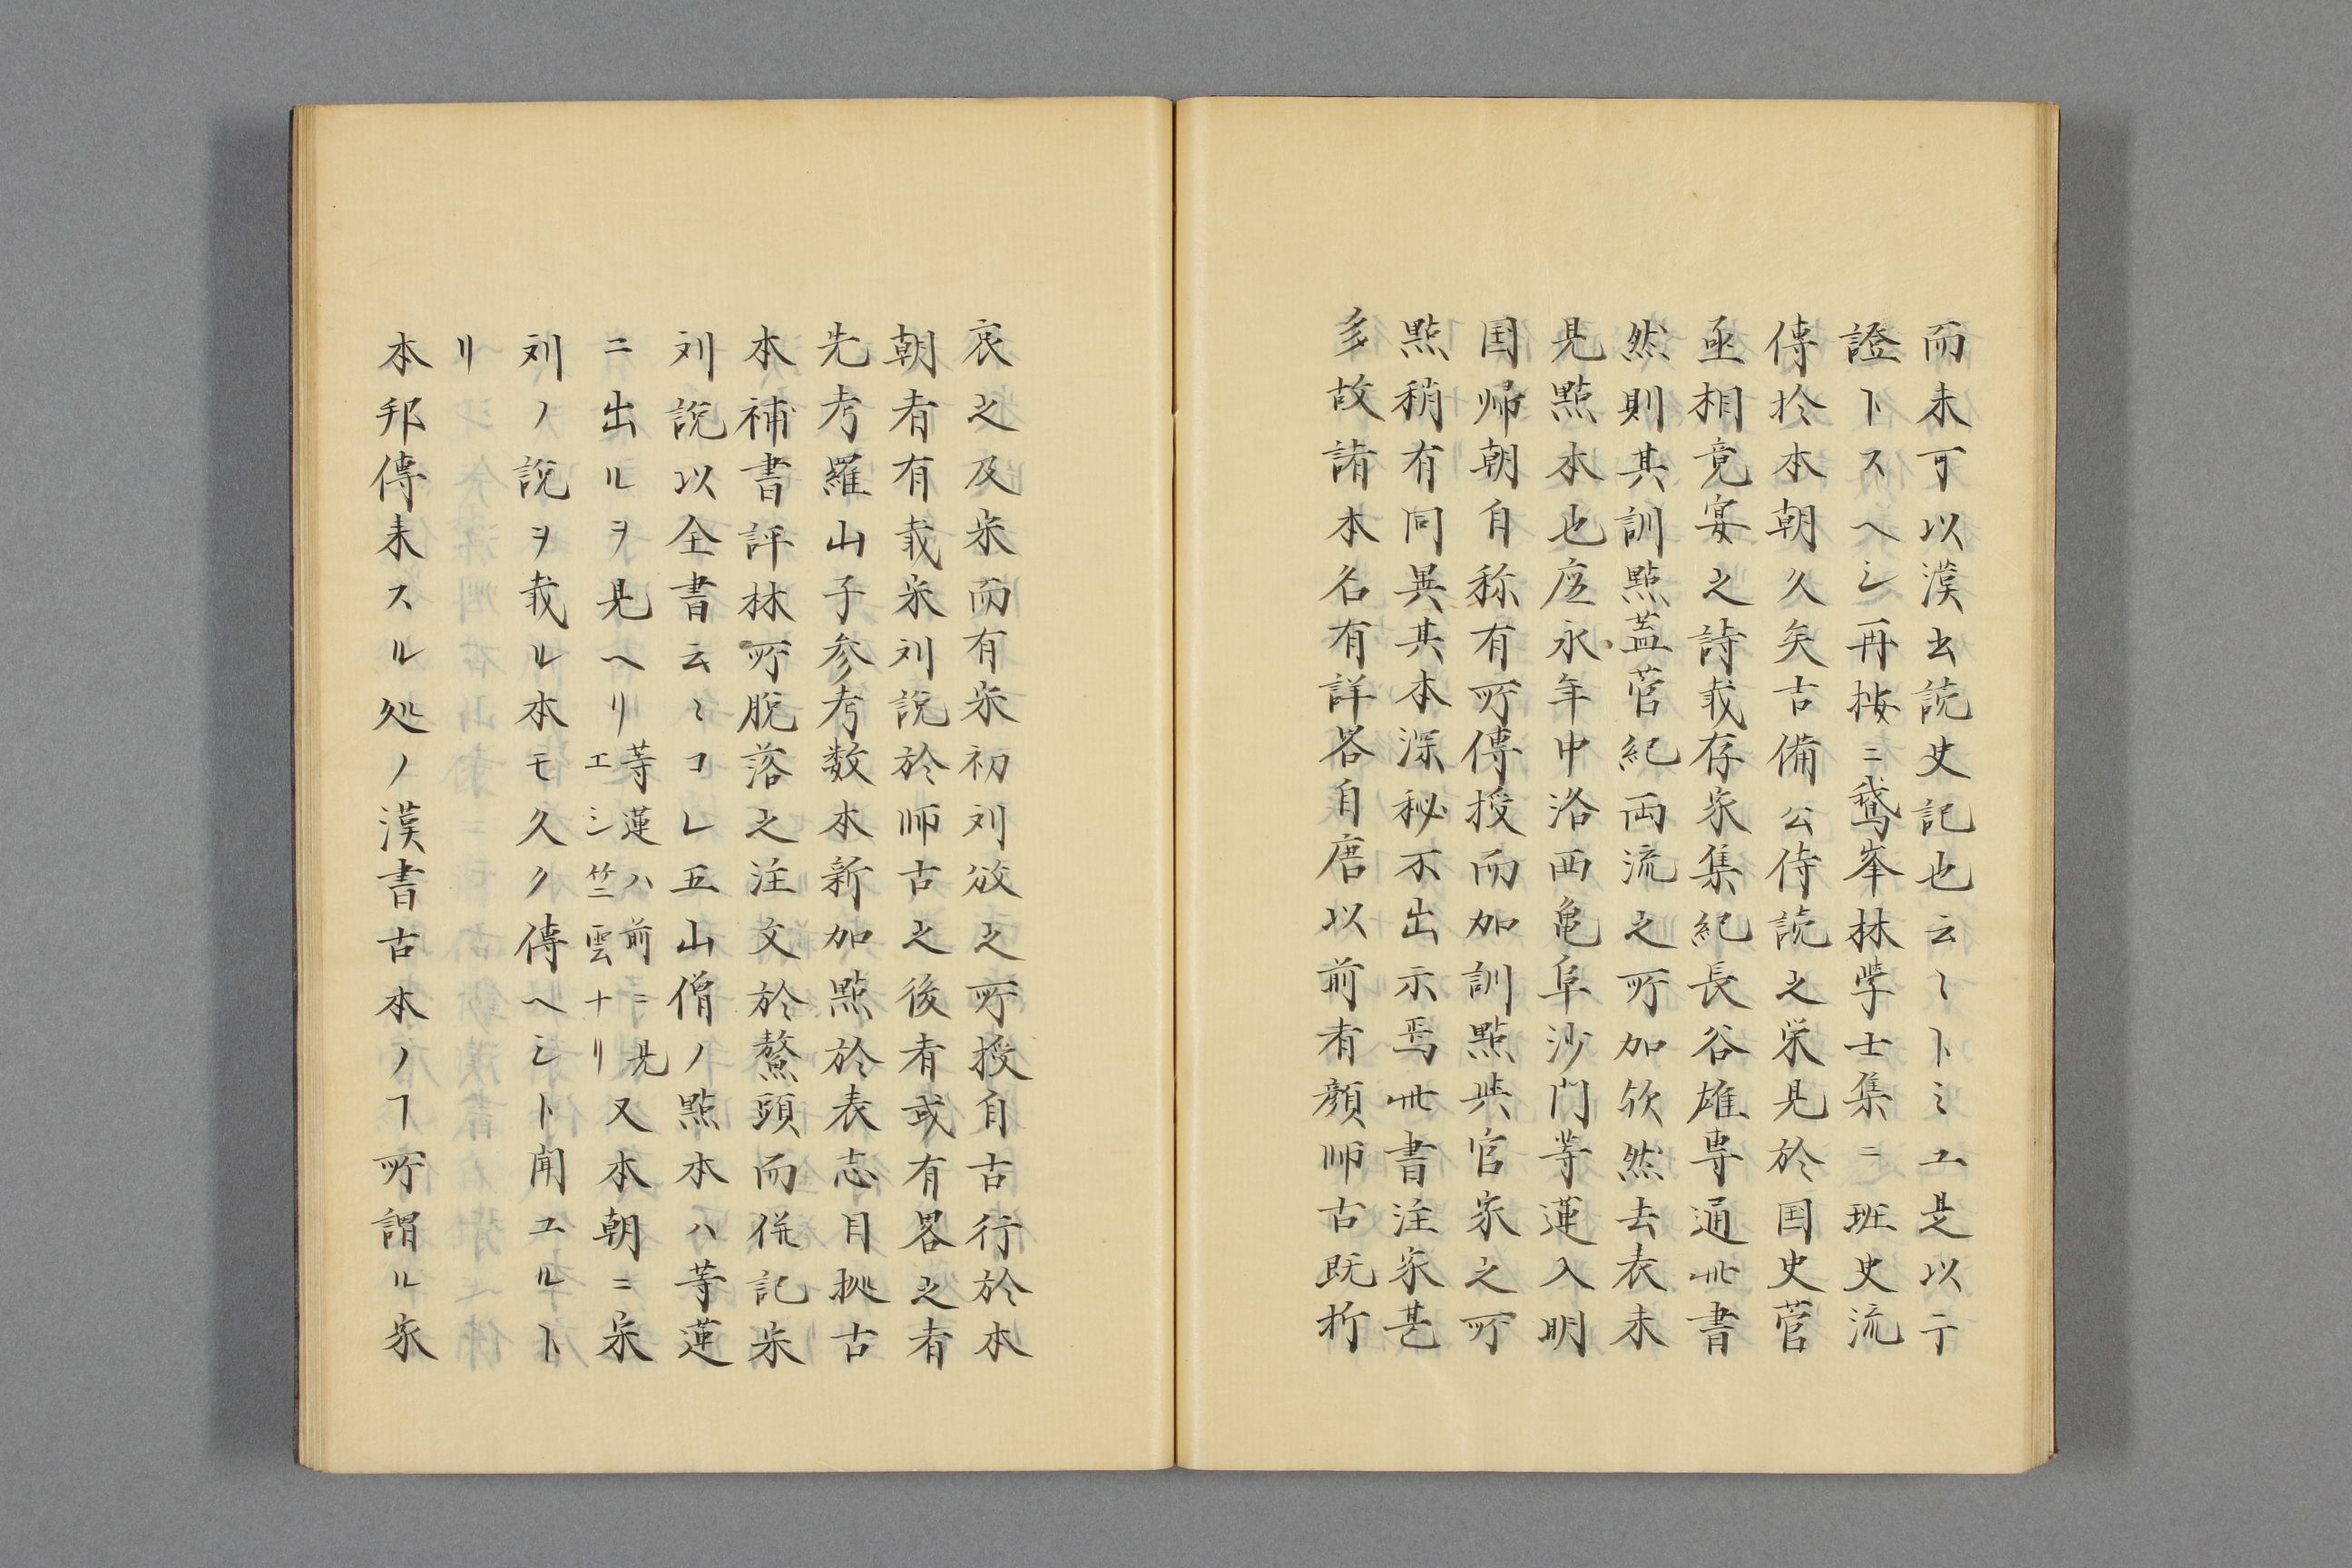 而未可以漢去読史記也云〻トミユ是以テ
證トスヘシ再按ニ鵞峯林学士集ニ班史流
傳於本朝久矣吉備公侍読之栄見於国史菅
亟相竟宴之詩載存家集紀長谷雄専通此書
然則其訓點蓋菅紀両流之所加欤然去表未
見點本也応永年中洛西亀阜沙門等蓮入明
国帰朝自称有所傳授而加訓點與官家之所
點稍有同異其本深秘不出示焉此書注家甚
多故諸本名有詳畧自唐以前有顔師古既折
衷之及宋而有宋初刘攽之所授自古行於本
朝者有載宋刘説於師古之後者或有畧之者
先考羅山子参考数本新加點於表志目挑古
本補書評林所脱落之注文於鰲頭而併記宋
刘説以全書云〻コレ五山僧ノ點本ハ等蓮
ニ出ルヲ見ヘリ等蓮ハ前ニ見エシ竺雲ナリ又本朝ニ宋
刘ノ説ヲ載ル本モ久ク傳ヘシト聞ユルト
リ
本邦傳来スル処ノ漢書古本ノヿ所謂ル家